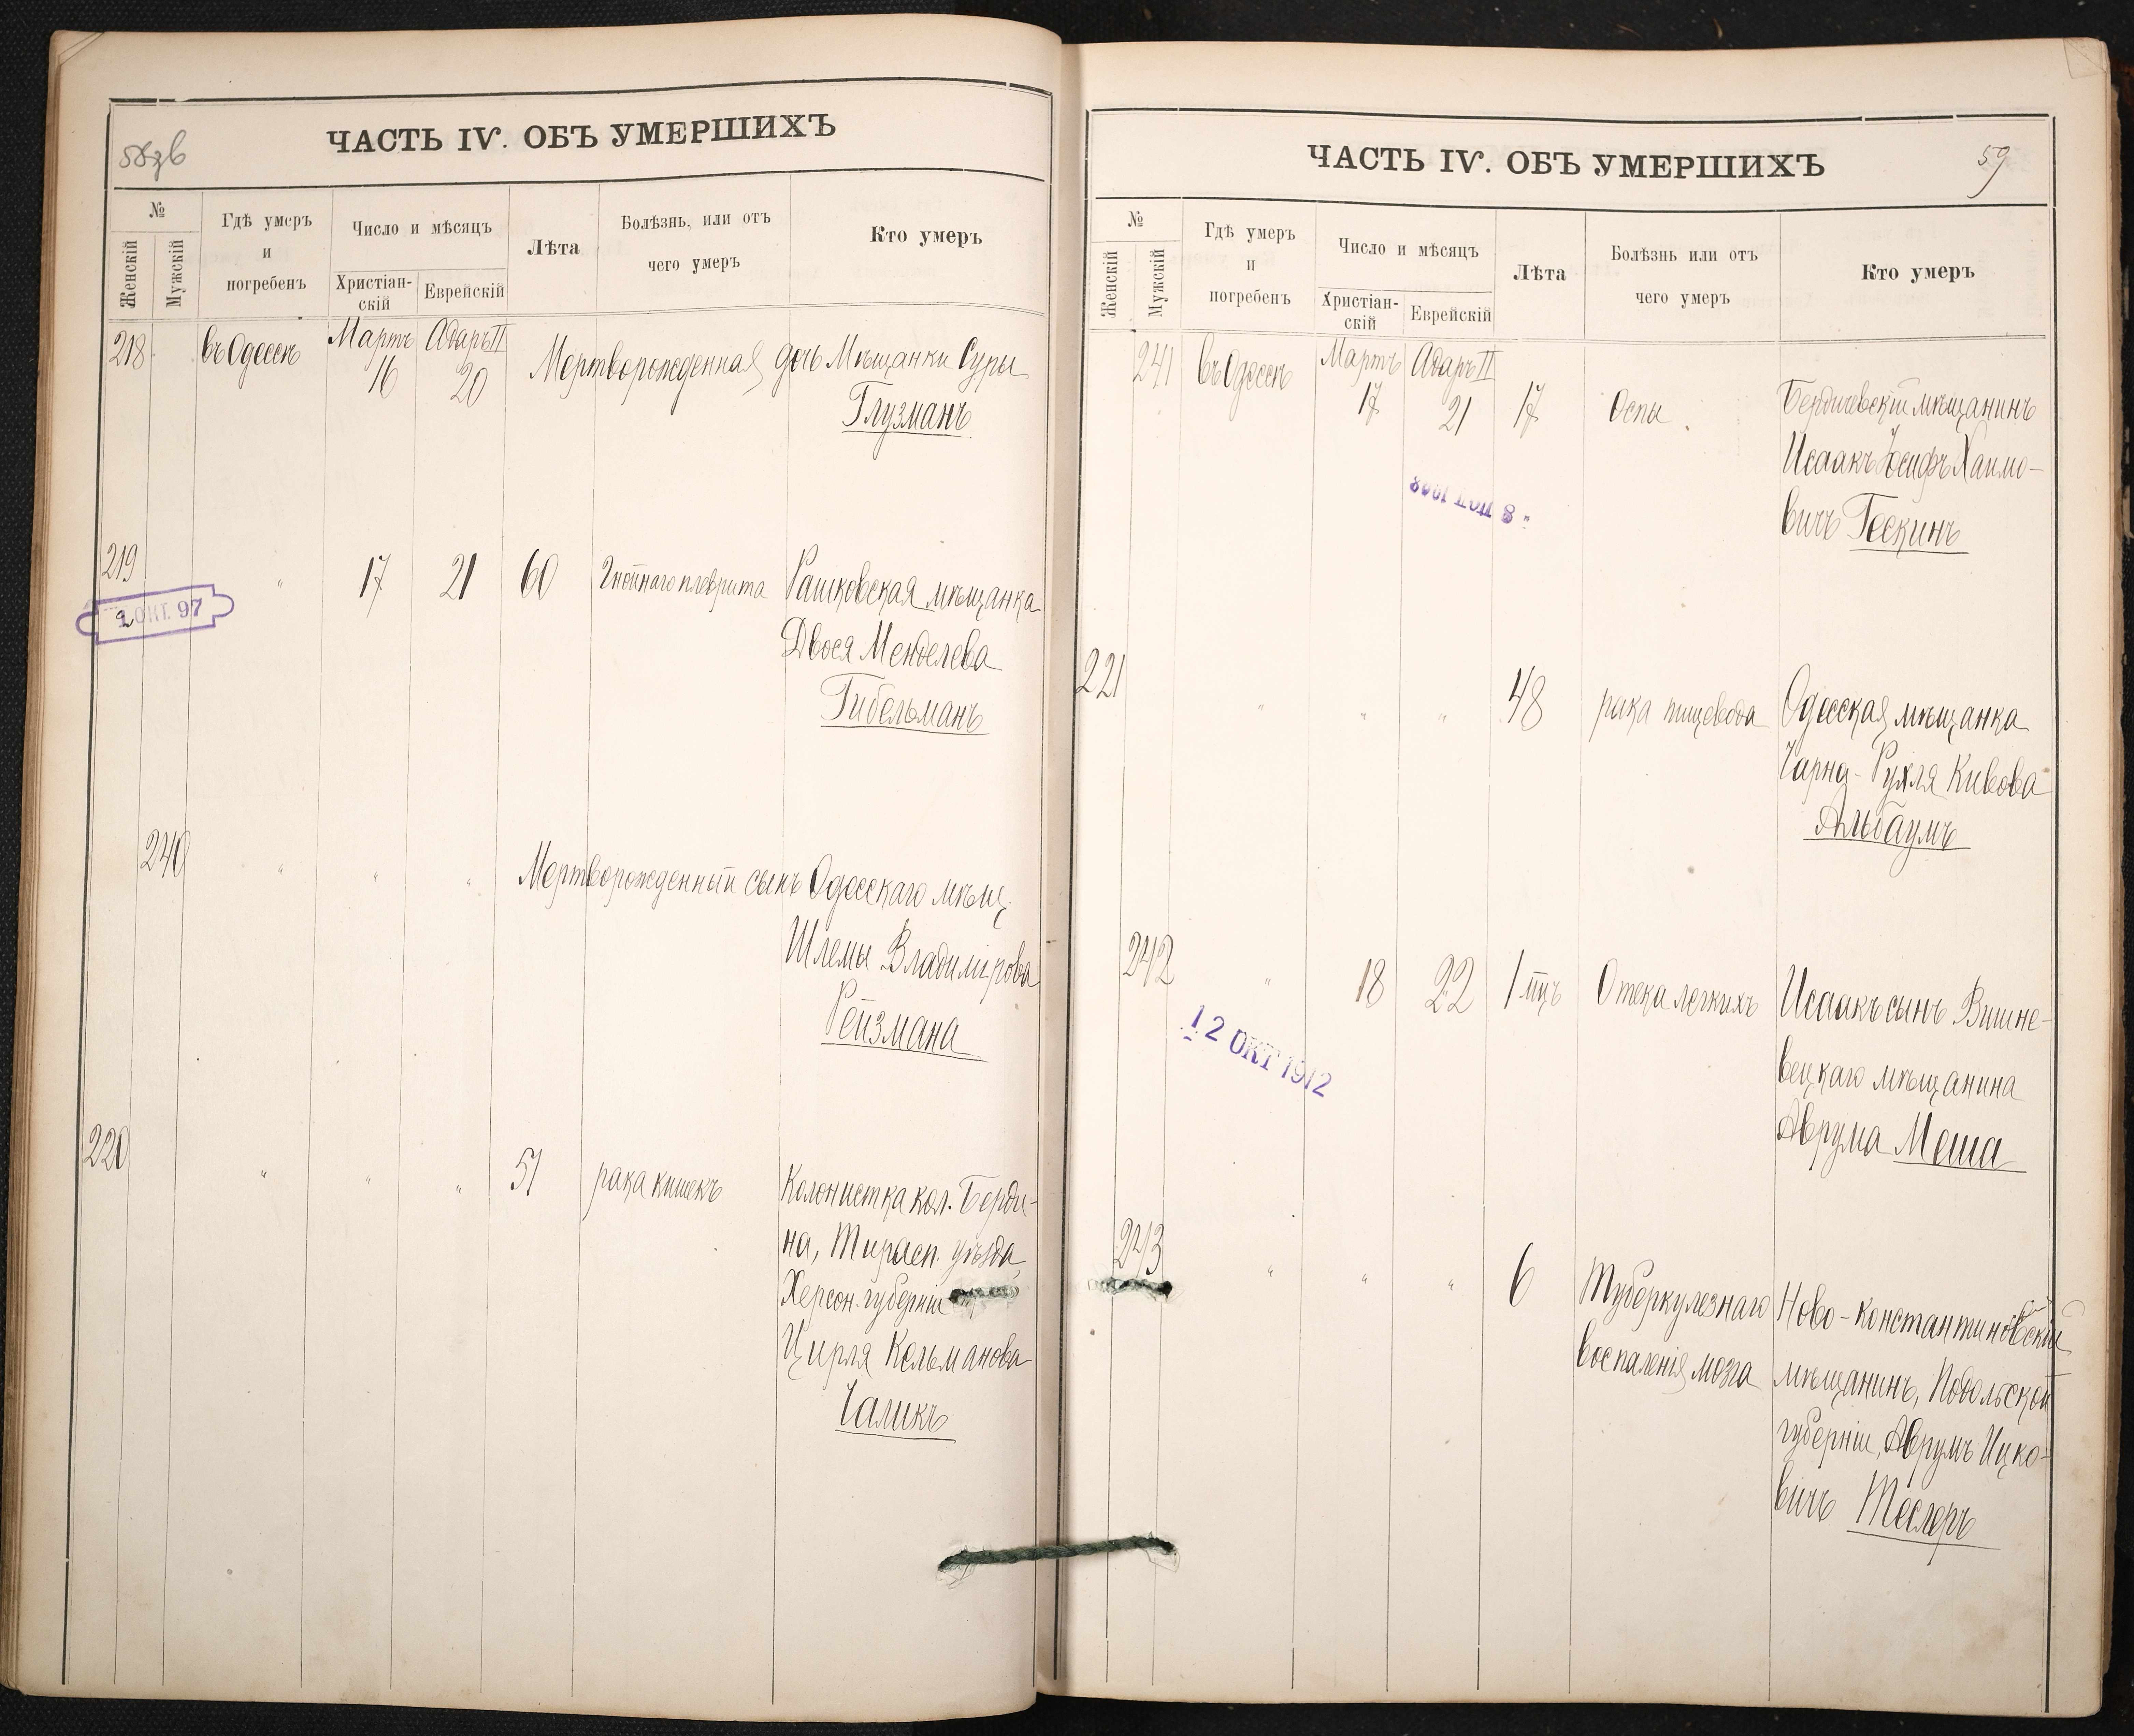 58зв
ЧАСТЬ IV. ОБЪ УМЕРШИХЪ
№
Женскій
Мужскій
Гдѣ умеръ
и
погребенъ
Число и мѣсяцъ
Христіан-
скій
Еврейскій
Лѣта
Болѣзнь, или отъ
чего умеръ
Кто умеръ
218 въ Одессѣ Мартъ 16 Адаръ II 20 Мертворожденная дочь Мѣщанки Суры
Глузманъ
219 " 17 21 60 Гнойнаго плеврита Рашковская мѣщанка
ОКТ. 97
Двося Менделева
Гибельманъ
240 " " " Мертворожденный сынъ Одесскаго мѣщ.
Шлемы Владимірова
Рейзмана
220 " " " 51 рака кишекъ Колонистка кол. Берди-
на, Тирасп. уѣзда,
Херсон. губерніи
Цирля Кельманова
Чаликъ
59
ЧАСТЬ IV. ОБЪ УМЕРШИХЪ
№
Женскій
Мужскій
Гдѣ умеръ
и
погребенъ
Число и мѣсяцъ
Христіан-
скій
Еврейскій
Лѣта
Болѣзнь или отъ
чего умеръ
Кто умеръ
241 въ Одессѣ Мартъ 17 Адаръ II 21 17 Оспы. Бердичевскій мѣщанинъ
Исаакъ Іосифъ Хаимо-
вичъ Гескинъ
221 " " " 48 рака пищевода Одесская мѣщанка
Чарна-Рухля Кивова
Альбаумъ
242 " 18 22 1 мцъ Отека легкихъ Исаакъ сынъ Вишне-
12 ОКТ 1912
вецкаго мѣщанина
Аврума Меша
243 " " " 6 Туберкулезнаго Ново-Константиновскій
воспаленія мозга мѣщанинъ, Подольской
губерніи, Аврумъ Ицко-
вичъ Теслеръ